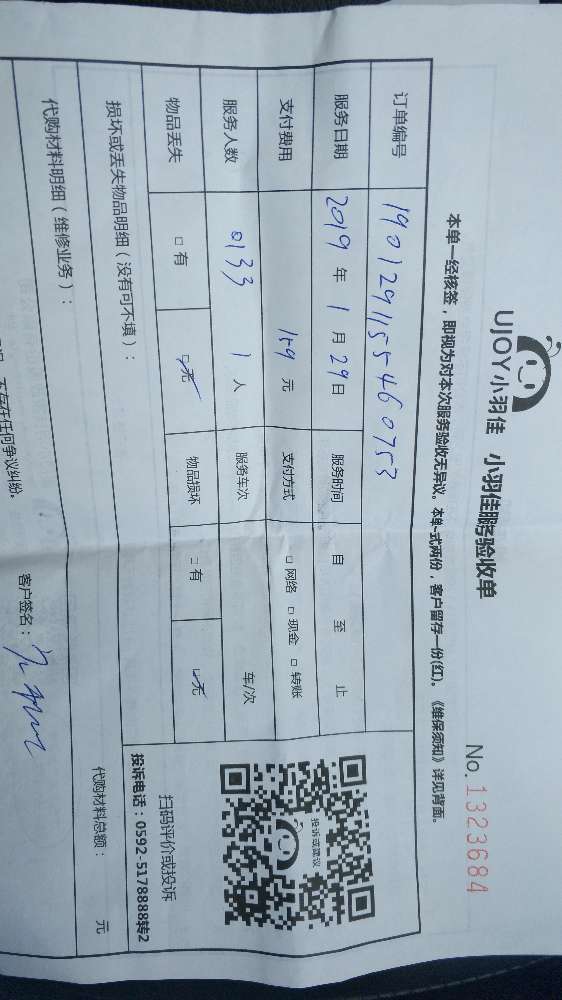 UJOY小羽佳 小羽佳服务验收单
No.1323684
本单一经核签，即视为对本次服务验收无异议。本单一式两份，客户留存一份(红)。《维保须知》详见背面。
订单编号 190129115546 0753
服务日期 2019 年 1 月 29 日 服务时间 自 至 止
支付费用 159 元 支付方式 □ 网络 □ 现金 □ 转账
服务人数 0133 1 人 服务车次 车/次
物品丢失 □ 有 □ 无 物品损坏 □ 有 □ 无
投诉或建议
扫码评价或投诉
投诉电话：0592-5178888转2
损坏或丢失物品明细（没有可不填）：
代购材料明细（维修业务）： 代购材料总额： 元
不存在任何争议纠纷。
客户签名：